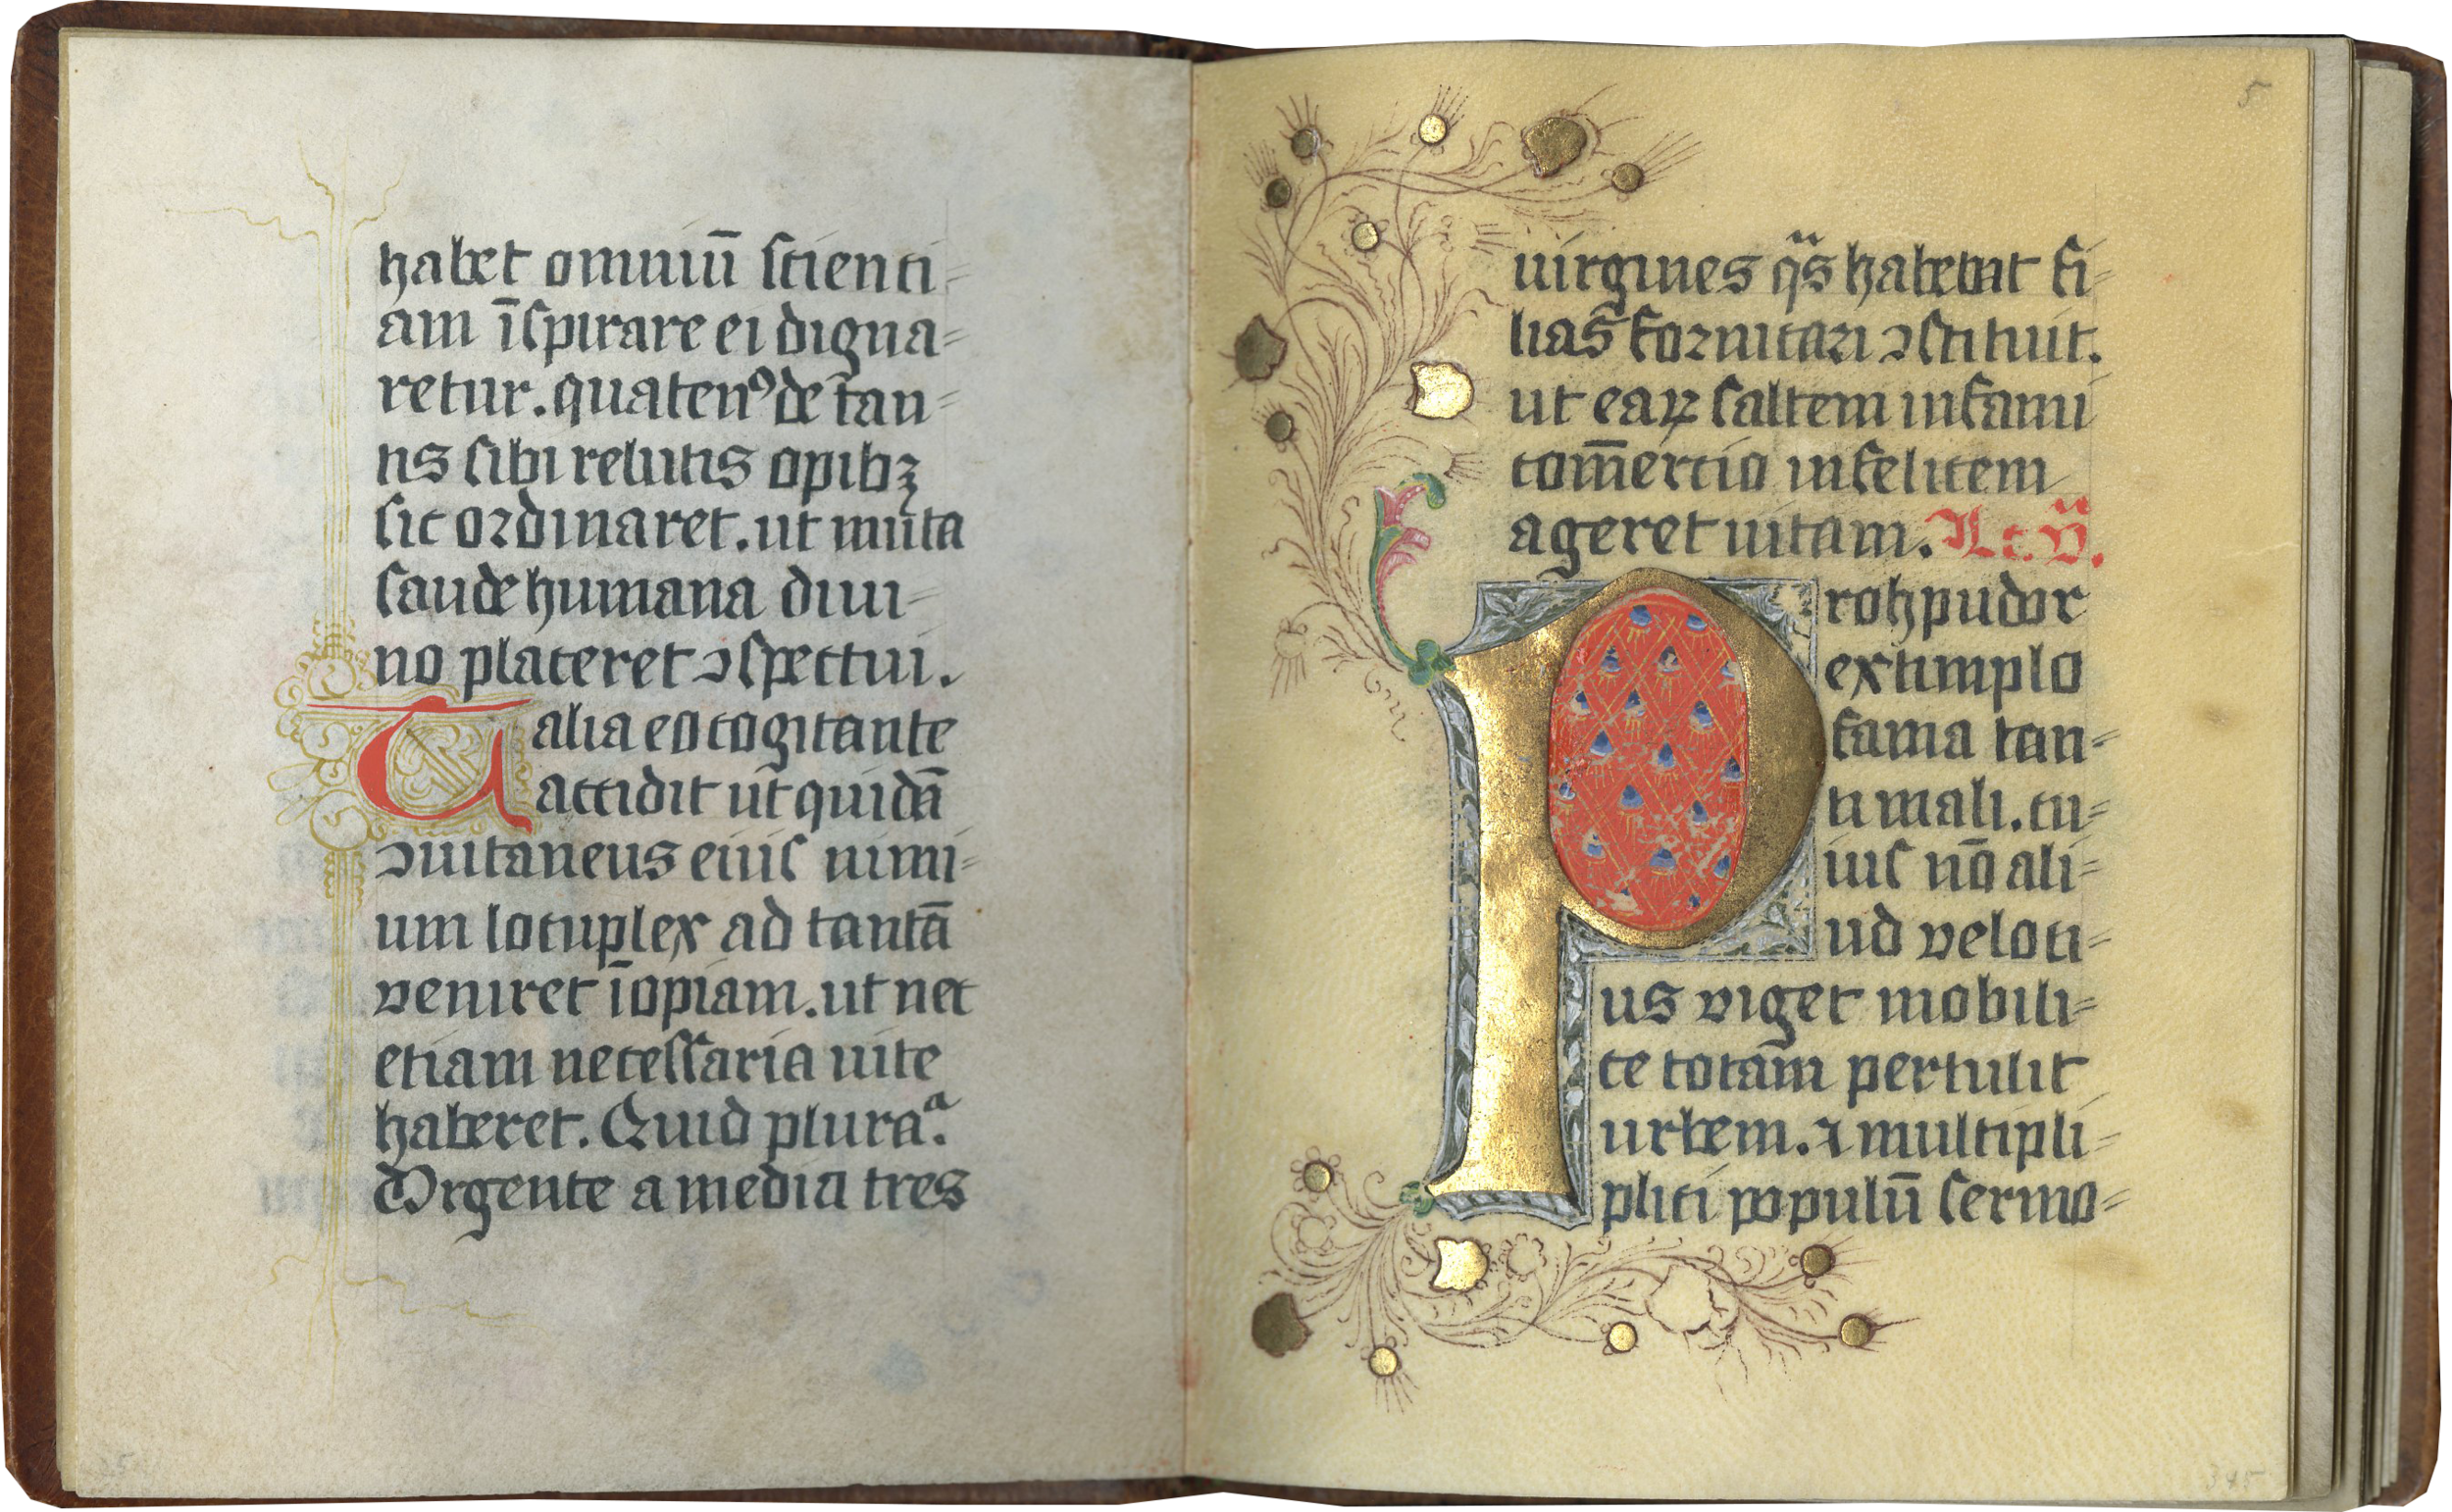 habet omniū scienti-
am īspirare ei digna-
retur. quatenꝰ de tan-
tis sibi relictis opibꝫ
sic ordinaret. ut nulla
laude humana diui-
no placeret ↄspectui.
Talia eo cogitante
accidit ut quidā
ↄuitaneus eius nimi-
um locuplex ad tantā
veniret īopiam. ut nec
etiam necessaria uite
haberet. Quid pluraᵃ.
Vrgente a media tres
5
uirgines q̈s habebat fi-
lias fornicari ↄstituit.
ut eaꝝ saltem infami
com̄ercio infelicem
ageret uitam. Lc. v̈.
Proh pudor
extimplo
fama tan-
ti mali. cu-
ius nō ali-
ud veloci-
us viget mobili-
te totam pertulit
urbem. ⁊ multipli-
plici populū sermo-
345